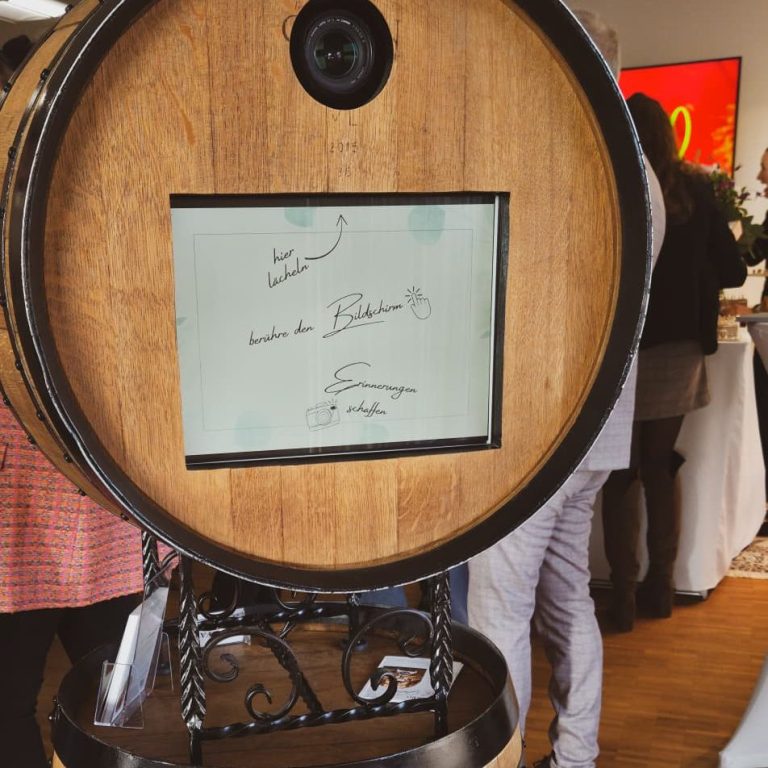 2015
hier
lächeln
berühre den Bildschirm
Erinnerungen
schaffen